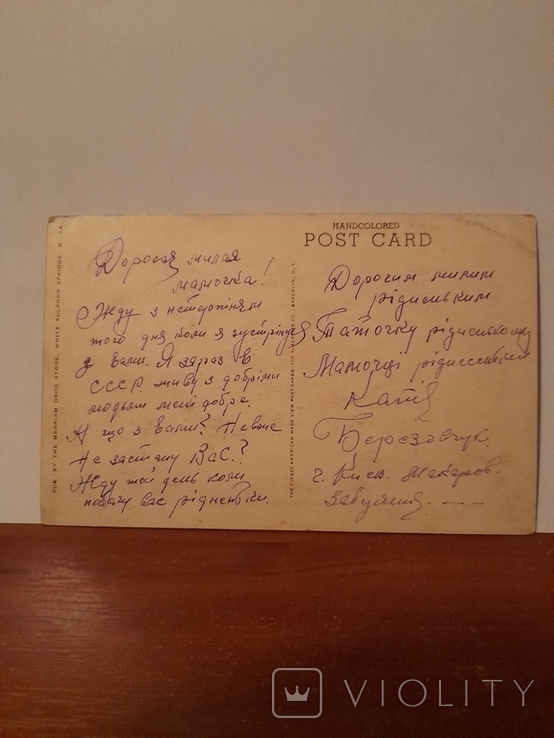 HANDCOLORED
POST CARD
PUB. BY THE MERRIAM DRUG STORE, WHITE SULPHUR SPRINGS, W. VA.
Дорогая милая
мамочка!
Жду з нетерпіням
того дня коли я зустрінус
з вами. Я зараз в
СССР живу з добріми
людьми мені добре.
А що з вами? Невже
Не застану Вас?
Жду той день коли
побачу вас рідненьки.
THE FINEST AMERICAN MADE VIEW POST CARDS—THE ALBERTYPE CO., BROOKLYN, N. Y.
Дорогим милим
Таточку
Мамочці
Катя
Березовчук.
г. Киев. Макаров.
VIOLITY